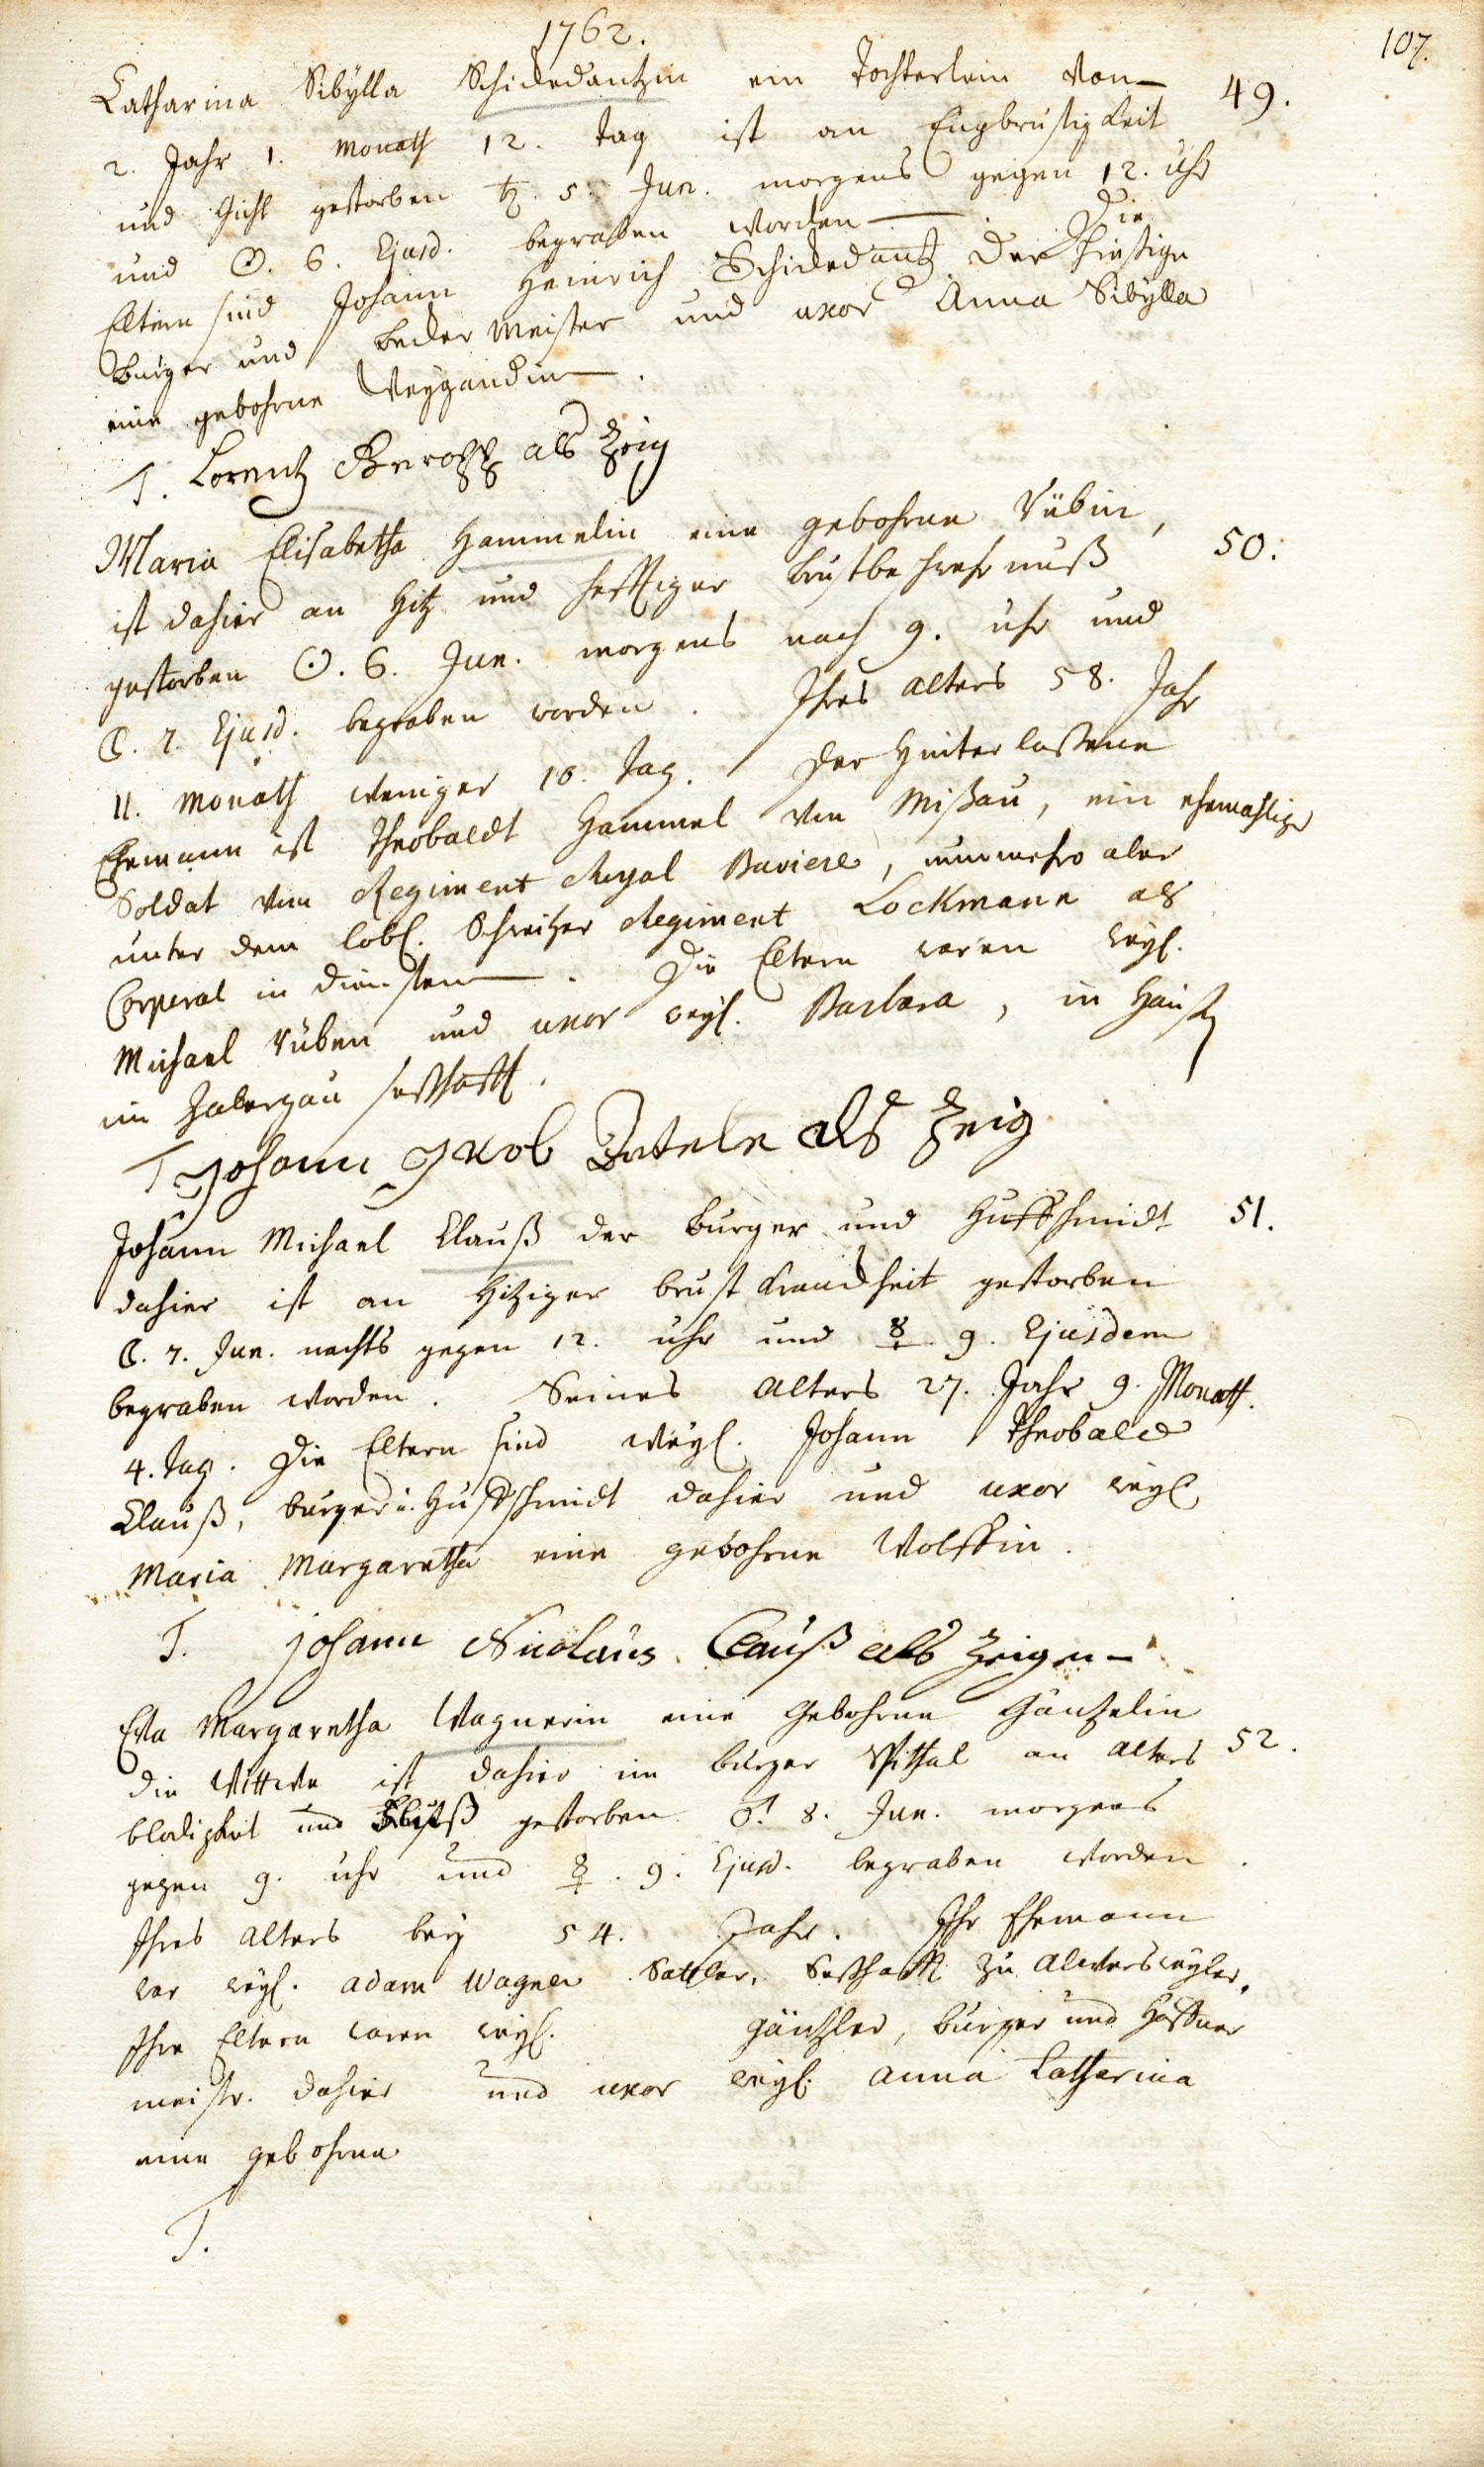 1762.
107.
Catharina Sibylla Schidedantzin ein Tochterlein von
49.
2. Jahr 1. Monath 12. Tag ist an Engbrustigkeit
und Gicht gestorben ♄. 5. Jun. morgens gegen 12. Uhr
und ☉. 6. Ejusd. begraben worden. Die
Eltern sind Johann Heinrich Schidedantz der hiesige
Burger und Becker Meister und uxor Anna Sibylla
eine gebohrne Weygandin.
T. Lorentz als Zeig
Maria Elisabetha Hammelin eine gebohrne Rübin,
50.
ist dahier an Hitz und hefftiger Brustbeschwehrnuß
gestorben ☉. 6. Jun. morgens nach 9. Uhr und
☾. 7. Ejusd. begraben worden. Ihres Alters 58. Jahr
11. Monath weniger 10. Tag. Der Hinterlassene
Ehemann ist Theobaldt Hammel von Missau, ein ehemahliger
Soldat vom Regiment Royal Baviere, nunmehro aber
unter dem lobl. Schweitzer Regiment Lockmann als
Corperal in Diensten. Die Eltern waren weyl.
Michael Rüben und uxor weyl. Barbara, in Hausen
im Zabergau sesshafft.
T Johann Jacob als Zeig
Johann Michael Clauß der Burger und Huffschmidt
51.
dahier ist an hitziger Brust Kranckheit gestorben
☾. 7. Jun. nachts gegen 12. Uhr und ☿. 9. Ejusdem
begraben worden. Seines Alters 27. Jahr 9. Monath.
4. Tag. Die Eltern sind weyl. Johann Theobald
Clauß, Burger u. Huffschmidt dahier und uxor weyl.
Maria Margaretha eine gebohrne Wolffin.
T. Johann Nicolaus Clauß als Zeigen
Eva Margaretha Wagnerin eine gebohrne Gäntzlin
die Wittwe ist dahier im Burger Spithal an Alters
52.
blodigkeit und gestorben ♂. 8. Jun. morgens
gegen 9. Uhr und ☿. 9. Ejusd. begraben worden.
Ihres Alters bey 54. Jahr. Ihr Ehemann
war weyl. Adam Wagner Sattler, Sesshafft zu Alwersweyler.
Ihre Eltern waren weyl. Gäntzler, Burger und Haffner
meistr. dahier und uxor weyl. Anna Catharina
eine gebohrne
T.